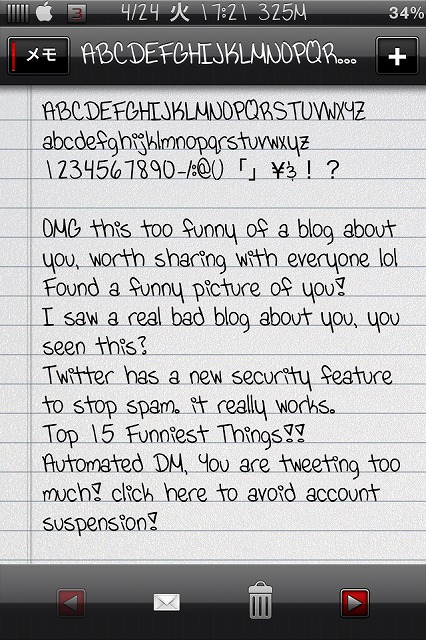 4/24 火 17:21 325M 34%
メモ ABCDEFGHIJKLMNOPQR... +
ABCDEFGHIJKLMNOPQRSTUVWXYZ
abcdefghijklmnopqrstuvwxyz
1234567890-/:@() 「」 ¥& ! ?
OMG this too funny of a blog about
you, worth sharing with everyone lol
Found a funny picture of you!
I saw a real bad blog about you, you
seen this?
Twitter has a new security feature
to stop spam. it really works.
Top 15 Funniest Things!!
Automated DM, You are tweeting too
much! click here to avoid account
suspension!